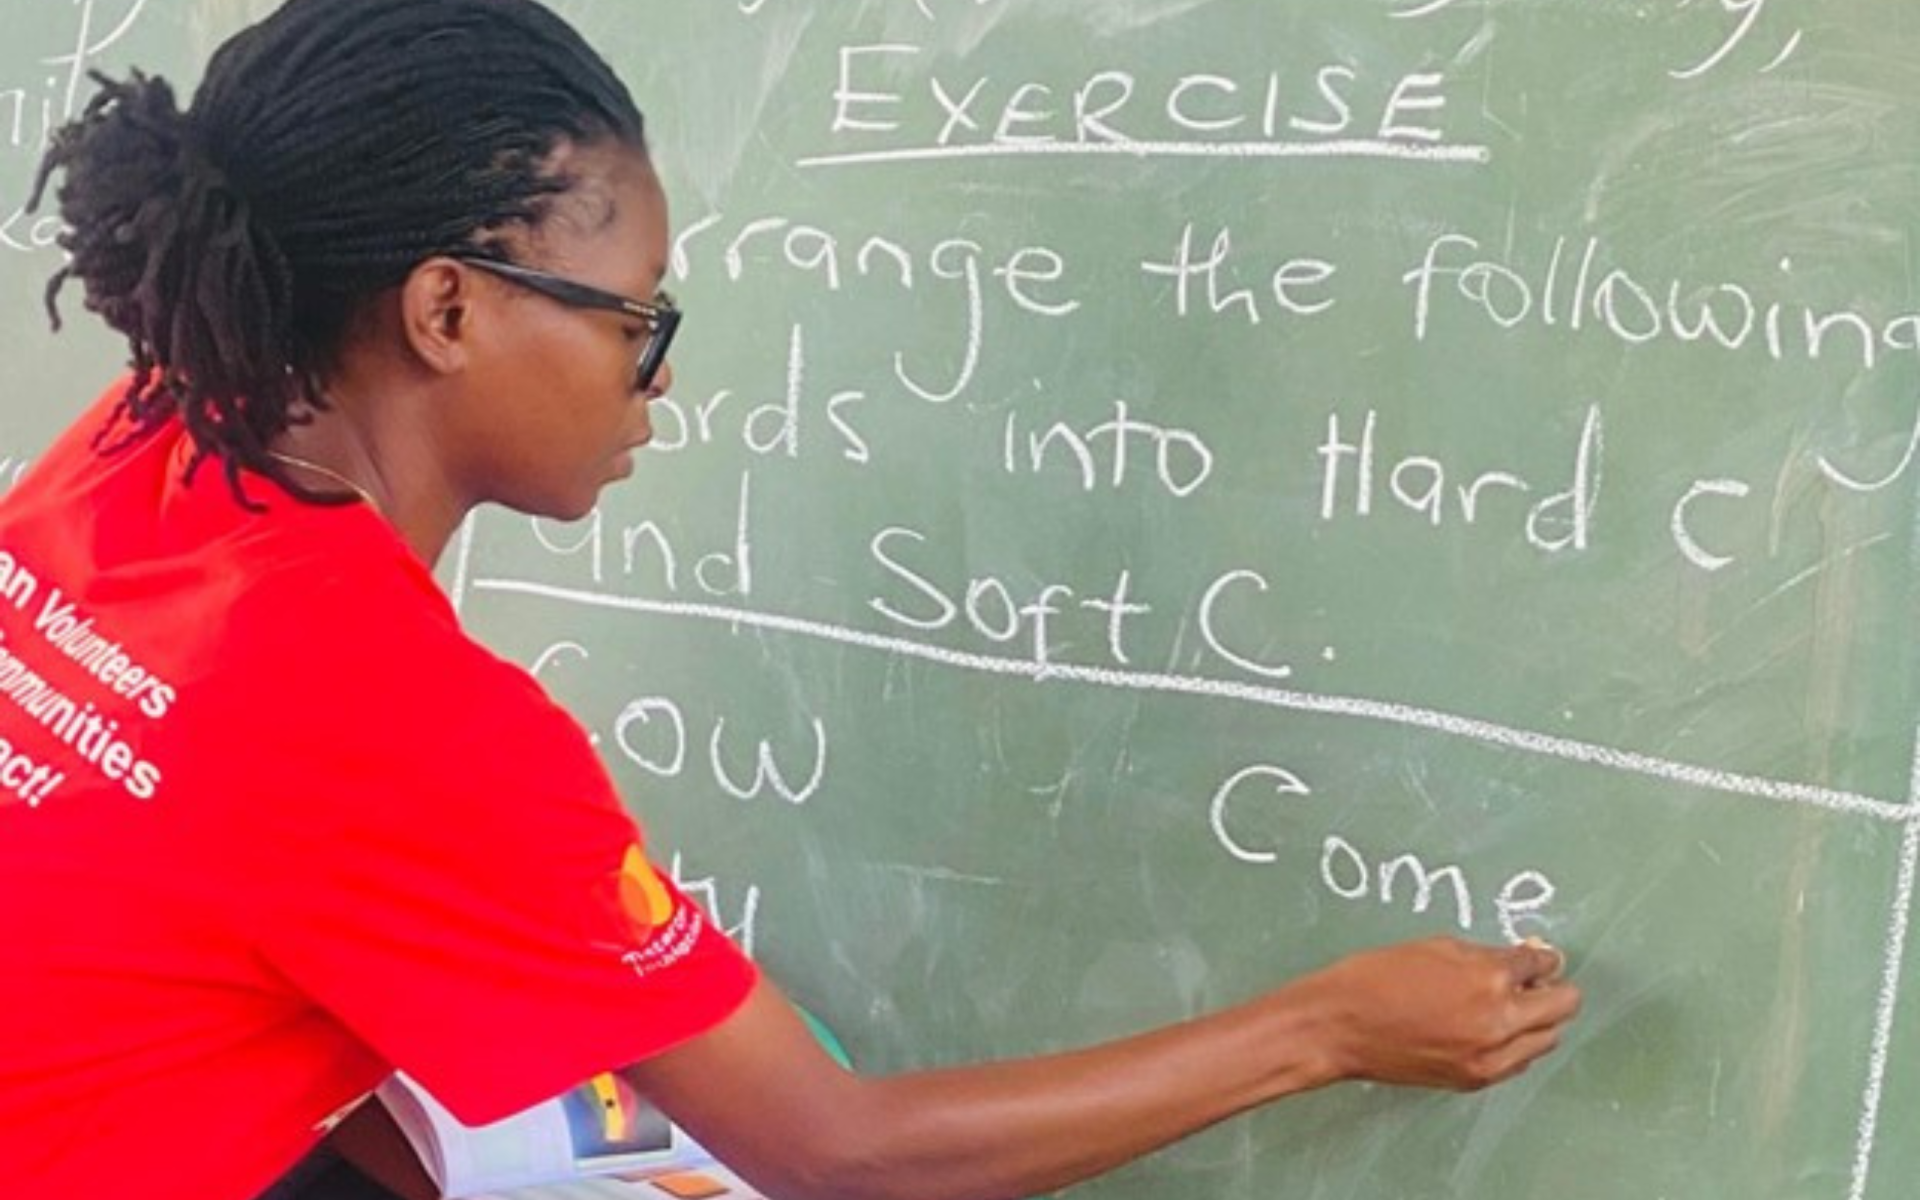 EXERCISE
rrange the following
ords into Hard C
and Soft C.
Cow
Come
ty
an Volunteers
mmunities
act!